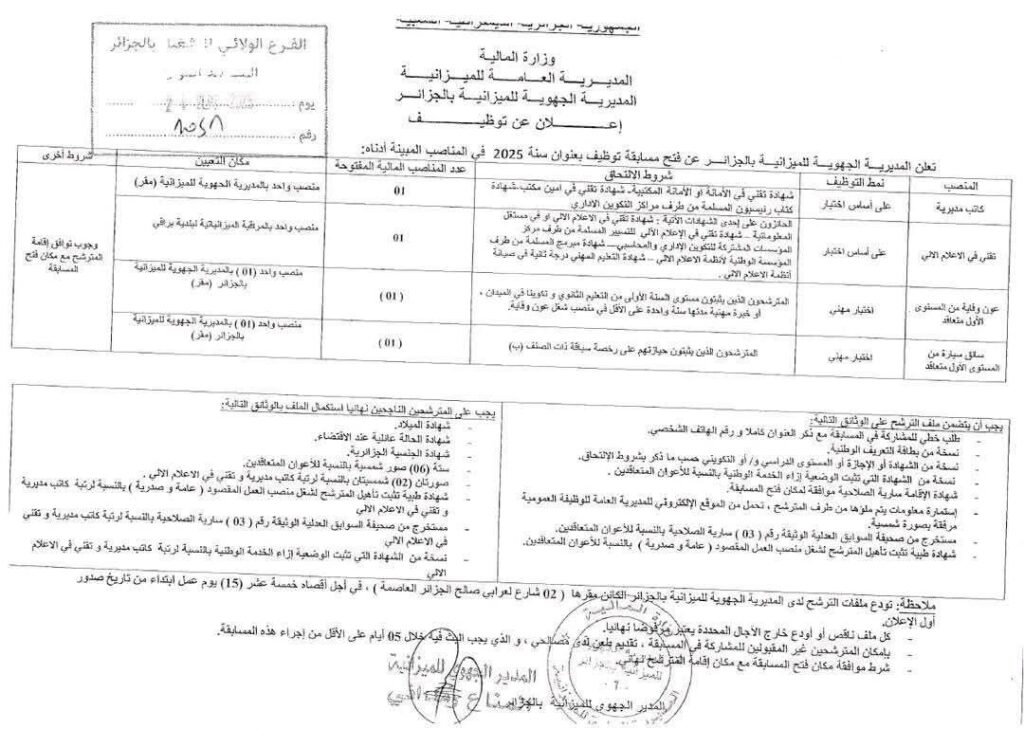 الجمهورية الجزائرية الديمقراطية الشعبية
وزارة المالية
المديرية العامة للميزانية
المديرية الجهوية للميزانية بالجزائر
إعلان عن توظيف
الفرع الولائي بالجزائر
يوم
رقم
تعلن المديرية الجهوية للميزانية بالجزائر عن فتح مسابقة توظيف بعنوان سنة 2025 في المناصب المبينة أدناه:
المنصب نمط التوظيف شروط الالتحاق عدد المناصب المالية المفتوحة مكان التعيين شروط أخرى
كاتب مديرية
على أساس اختبار
شهادة تقني في الأمانة او الأمانة المكتبية- شهادة تقني في امين مكتب-شهادة
كتاب رئيسيون المسلمة من طرف مراكز التكوين الاداري
01
منصب واحد بالمديرية الجهوية للميزانية (مقر)
تقني في الاعلام الالي
على أساس اختبار
الحائزون على إحدى الشهادات الآتية : شهادة تقني في الاعلام الالي او في مستغل
المعلوماتية – شهادة تقني في الإعلام الآلي للتسيير المسلمة من طرف مركز
المؤسسات المشتركة للتكوين الإداري والمحاسبي– شهادة مبرمج المسلمة من طرف
المؤسسة الوطنية لأنظمة الاعلام الالي – شهادة التعليم المهني درجة ثانية في صيانة
أنظمة الاعلام الالي .
01
منصب واحد بالمراقبة الميزانياتية لبلدية براقي
وجوب توافق إقامة
المترشح مع مكان فتح
المسابقة
عون وقاية من المستوى
الأول متعاقد
اختبار مهني
المترشحون الذين يثبتون مستوى السنة الأولى من التعليم الثانوي و تكوينا في الميدان ،
أو خبرة مهنية مدتها سنة واحدة على الأقل في منصب شغل عون وقاية.
( 01 )
منصب واحد (01 ) بالمديرية الجهوية للميزانية
بالجزائر (مقر)
سائق سيارة من
المستوى الأول متعاقد
اختبار مهني
المترشحون الذين يثبتون حيازتهم على رخصة سياقة ذات الصنف (ب)
( 01 )
منصب واحد (01 ) بالمديرية الجهوية للميزانية
بالجزائر (مقر)
يجب أن يتضمن ملف الترشح على الوثائق التالية:
- طلب خطي للمشاركة في المسابقة مع ذكر العنوان كاملا و رقم الهاتف الشخصي.
- نسخة من بطاقة التعريف الوطنية.
- نسخة من الشهادة أو الإجازة أو المستوى الدراسي و/ أو التكويني حسب ما ذكر بشروط الالتحاق.
- نسخة من الشهادة التي تثبت الوضعية إزاء الخدمة الوطنية بالنسبة للأعوان المتعاقدين .
- شهادة الإقامة سارية الصلاحية موافقة لمكان فتح المسابقة.
- إستمارة معلومات يتم ملؤها من طرف المترشح ، تحمل من الموقع الإلكتروني للمديرية العامة للوظيفة العمومية
مرفقة بصورة شمسية.
- مستخرج من صحيفة السوابق العدلية الوثيقة رقم ( 03 ) سارية الصلاحية بالنسبة للأعوان المتعاقدين.
- شهادة طبية تثبت تأهيل المترشح لشغل منصب العمل المقصود ( عامة و صدرية ) بالنسبة للأعوان المتعاقدين.
يجب على المترشحين الناجحين نهائيا استكمال الملف بالوثائق التالية:
- شهادة الميلاد.
- شهادة الحالة عائلية عند الاقتضاء.
- شهادة الجنسية الجزائرية.
- ستة (06) صور شمسية بالنسبة للأعوان المتعاقدين.
- صورتان (02) شمسيتان بالنسبة لرتبة كاتب مديرية و تقني في الاعلام الالي .
- شهادة طبية تثبت تأهيل المترشح لشغل منصب العمل المقصود ( عامة و صدرية ) بالنسبة لرتبة كاتب مديرية
و تقني في الاعلام الالي
- مستخرج من صحيفة السوابق العدلية الوثيقة رقم ( 03 ) سارية الصلاحية بالنسبة لرتبة كاتب مديرية و تقني
في الاعلام الالي
- نسخة من الشهادة التي تثبت الوضعية إزاء الخدمة الوطنية بالنسبة لرتبة كاتب مديرية و تقني في الاعلام
الالي
ملاحظة: تودع ملفات الترشح لدى المديرية الجهوية للميزانية بالجزائر الكائن مقرها ( 02 شارع لعرابي صالح الجزائر العاصمة ) ، في أجل أقصاه خمسة عشر (15) يوم عمل ابتداء من تاريخ صدور
أول الإعلان.
- كل ملف ناقص أو أودع خارج الآجال المحددة يعتبر مرفوضا نهائيا.
- بإمكان المترشحين غير المقبولين للمشاركة في المسابقة ، تقديم طعن لدى مصالحي ، و الذي يجب البت فيه خلال 05 أيام على الأقل من إجراء هذه المسابقة.
- شرط موافقة مكان فتح المسابقة مع مكان إقامة المترشح نهائي.
المدير الجهوي للميزانية بالجزائر
المدير الجهوي للميزانية